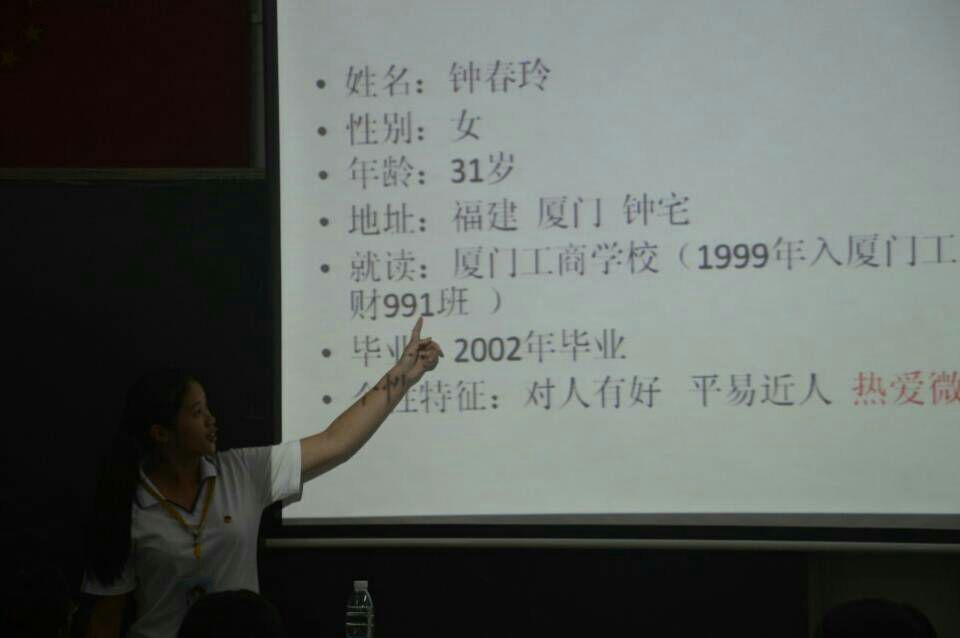 • 姓名：钟春玲
• 性别：女
• 年龄：31岁
• 地址：福建 厦门 钟宅
• 就读：厦门工商学校（1999年入厦门工
财991班 ）
• 毕业 2002年毕业
• 个性特征：对人有好 平易近人 热爱微